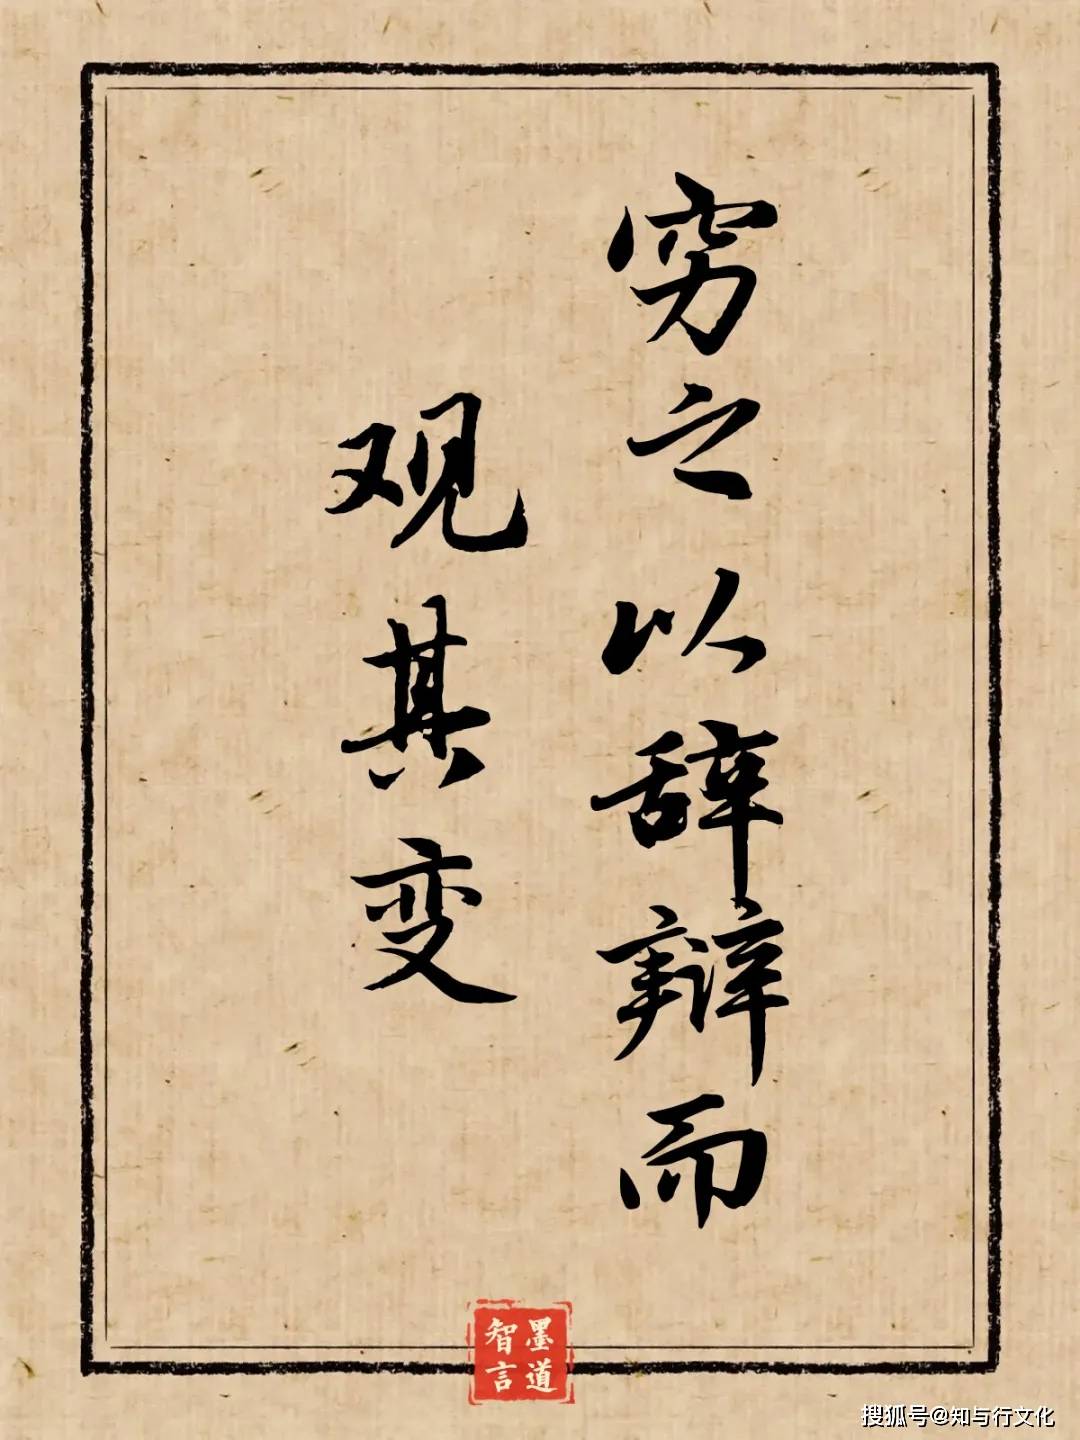 穷之以辞辩而
观其变
墨道
智言
搜狐号@知与行文化